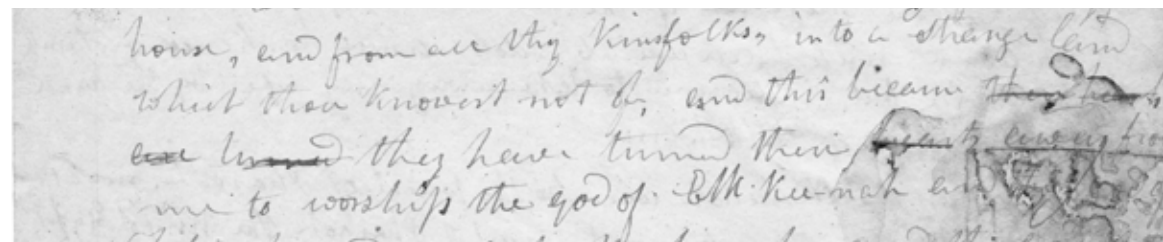 house, and from all thy kinsfolks, into a strange land
which thou knowest not of, and this because their hearts
are turned they have turned their hearts away from
me to worship the god of Elk-Kee-nah and the